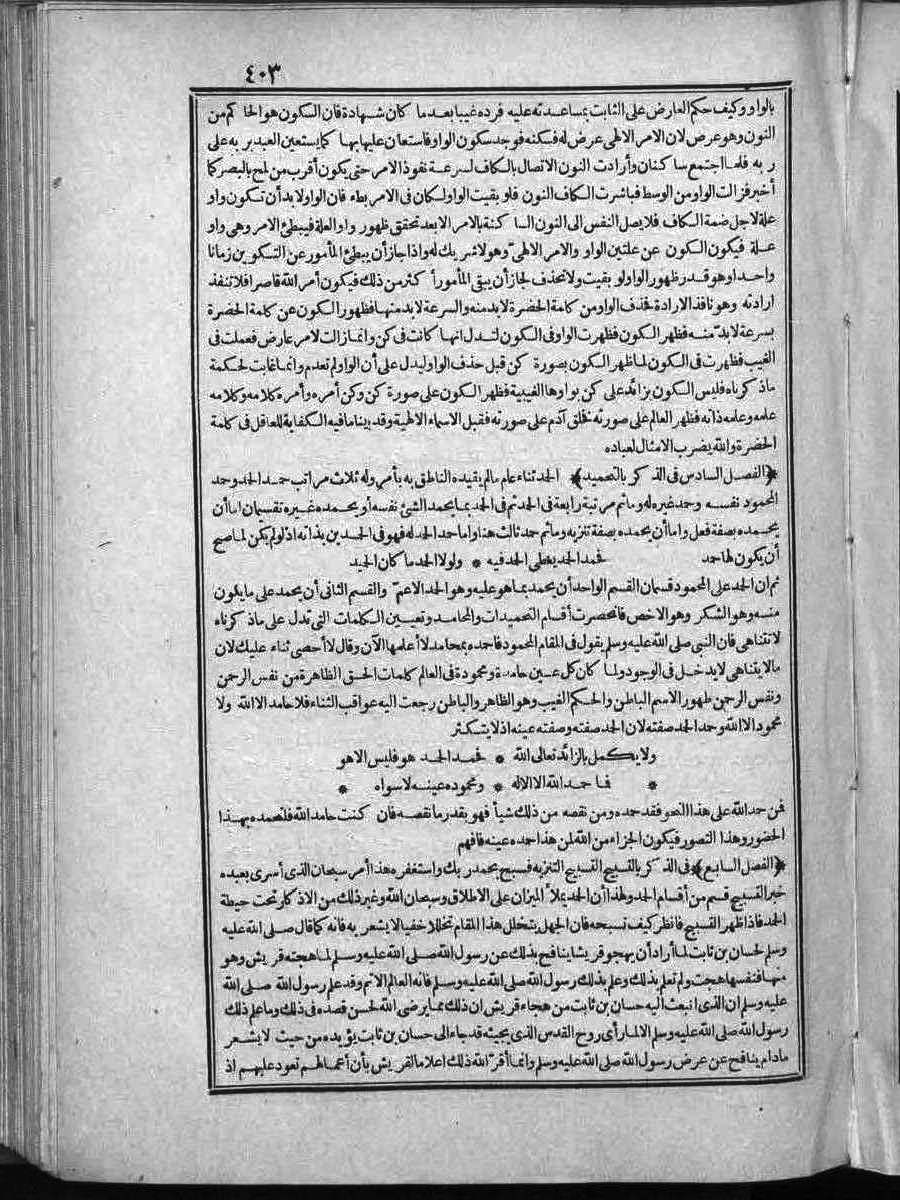 ٤٠٣
بالواو وكيف حكم العارض على الثابت بمساعدته عليه فرده غيبا بعدما كان شهادة فان السكون هو الحاكم من
النون وهو عرض لان الامر الالهى عرض له فسكنه فوجد سكون الواو فاستعان عليها بها كما يستعين العبد بربه على
ربه فلما اجتمع ساكنان وأرادت النون الاتصال بالكاف لسرعة نفوذ الامر حتى يكون أقرب من لمح بالبصر كما
أخبر فزالت الواو من الوسط فباشرت الكاف النون فلو بقيت الواو لكان فى الامر بطء فان الواو لا بد أن تكون واو
علة لاجل ضمة الكاف فلا يصل النفس الى النون الساكنة بالامر الا بعد تحقق ظهور واو العلة فيبطئ الامر وهى واو
علة فيكون الكون عن علتين الواو والامر الالهىّ وهو لا شريك له واذا جاز أن يبطئ المأمور عن التكوين زمانا
واحدا وهو قدر ظهور الواو لو بقيت ولا تحذف لجاز أن يبقى المأمور أكثر من ذلك فيكون أمر الله قاصرا فلا تنفذ
ارادته وهو نافذ الارادة فحذف الواو من كلمة الحضرة لا بد منه والسرعة لا بد منها فظهور الكون عن كلمة الحضرة
بسرعة لا بدّ منه فظهر الكون فظهرت الواو فى الكون لتدل انها كانت فى كن وانما زالت لامر عارض فعملت فى
الغيب فظهرت فى الكون لما ظهر الكون بصورة كن قبل حذف الواو ليدل على أن الواو لم تعدم وانما غابت لحكمة
ما ذكرناه فليس الكون بزائد على كن بواوها الغيبية فظهر الكون على صورة كن وكن أمره وأمره كلامه وكلامه
علمه وعلمه ذاته فظهر العالم على صورته فخلق آدم على صورته فقبل الاسماء الالهية وقد بينا ما فيه الكفاية للعاقل فى كلمة
الحضرة والله يضرب الامثال لعباده
﴿الفصل السادس فى الذكر بالتحميد﴾ الحمد ثناء عام ما لم يقيده الناطق به بأمر وله ثلاث مراتب حمد الحمد وحمد
المحمود نفسه وحمد غيره له وما ثم مرتبة رابعة فى الحمد ثم فى الحمد بما يحمد الشئ نفسه أو يحمده غيره تقسيمان اما أن
يحمده بصفة فعل واما أن يحمده بصفة تنزيه وما ثم حمد ثالث هنا وأما حمد الحمد له فهو فى الحمدين بذاته اذ لو لم يكن لما صح
أن يكون لها حمد فحمد الحمد يعطى الحمد فيه * ولولا الحمد ما كان الحميد
ثم ان الحمد على المحمود قسمان القسم الواحد أن يحمد بما هو عليه وهو الحمد الاعمّ والقسم الثانى أن يحمد على ما يكون
منه وهو الشكر وهو الاخص فانحصرت أقسام التحميدات والمحامد وتعيين الكلمات التى تدل على ما ذكرناه
لا تتناهى فان النبى صلى الله عليه وسلم يقول فى المقام المحمود فاحمده بمحامد لا أعلمها الآن وقال لا أحصى ثناء عليك لان
ما لا يتناهى لا يدخل فى الوجود ولما كان كل عين حامدة ومحمودة فى العالم كلمات الحق الظاهرة من نفس الرحمن
ونفس الرحمن ظهور الاسم الباطن والحكم الغيب وهو الظاهر والباطن رجعت اليه عواقب الثناء فلا حامد الا الله ولا
محمود الا الله وحمد الحمد صفته لان الحمد صفته وصفته عينه اذ لا يتكثر
ولا يكمل بالزائد تعالى الله * فحمد الحمد هو فليس الا هو
* فما حمد الله الا الاله * ومحموده عينه لا سواه *
فمن حمد الله على هذا النحو فقد حمده ومن نقصه من ذلك شيأ فهو بقدر ما نقصه فان كنت حامد الله فلتحمده بهذا
الحضور وهذا التصور فيكون الجزاء من الله لمن هذا حمده عينه فافهم
﴿الفصل السابع﴾ فى الذكر بالتسبيح التسبيح التنزيه فسبح بحمد ربك واستغفره هذا أمر سبحان الذى أسرى بعبده
خبر التسبيح قسم من أقسام الحمد ولهذا أن الحمد يملأ الميزان على الاطلاق وسبحان الله وغير ذلك من الاذكار تحت حيطة
الحمد فاذا ظهر التسبيح فانظر كيف تسبحه فان الجهل يتخلل هذا المقام تخللا خفيا لا يشعر به فانه كما قال صلى الله عليه
وسلم لحسان بن ثابت لما أراد أن يهجو قريشا ينافح بذلك عن رسول الله صلى الله عليه وسلم لما هجته قريش وهو
منها فنفسها هجت ولم تعلم بذلك وعلم بذلك رسول الله صلى الله عليه وسلم فانه العالم الاتم وقد علم رسول الله صلى الله
عليه وسلم ان الذى انبعث اليه حسان بن ثابت من هجاء قريش ان ذلك مما يرضى الله لحسن قصده فى ذلك وما علم ذلك
رسول الله صلى الله عليه وسلم الا لما رأى روح القدس الذى يجيئه قد جاء الى حسان بن ثابت يؤيده من حيث لا يشعر
ما دام ينافح عن عرض رسول الله صلى الله عليه وسلم وانما أقرّ الله ذلك اعلاما لقريش بأن أعمالهم تعود عليهم اذ